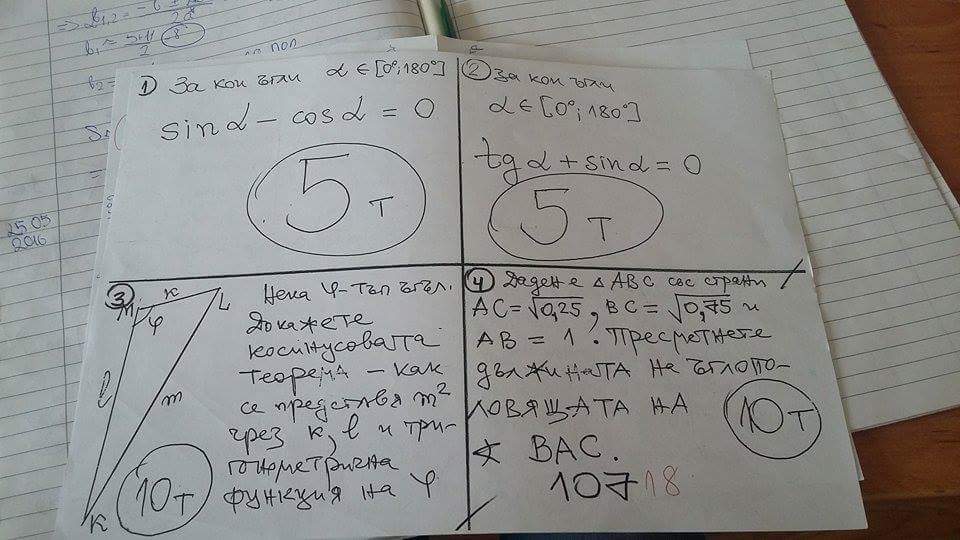 1) За кои ъгли α ∈ [0°; 180°]
sinα - cosα = 0
5 т
2 За кои ъгли
α ∈ [0°; 180°]
tgα + sinα = 0
5 т
3
M K L
φ
l m
K
Нека φ-тъп ъгъл.
Докажете
косинусовата
теорема - как
се представя m²
чрез к, l и три-
гонометрична
функция на φ
10 т
4 Даден е △ ABC със страни
AC = √0,25, BC = √0,75 и
AB = 1. Пресметнете
дължината на ъглопо-
ловящата на
∢ BAC.
10 т
107 18
25 05
2016